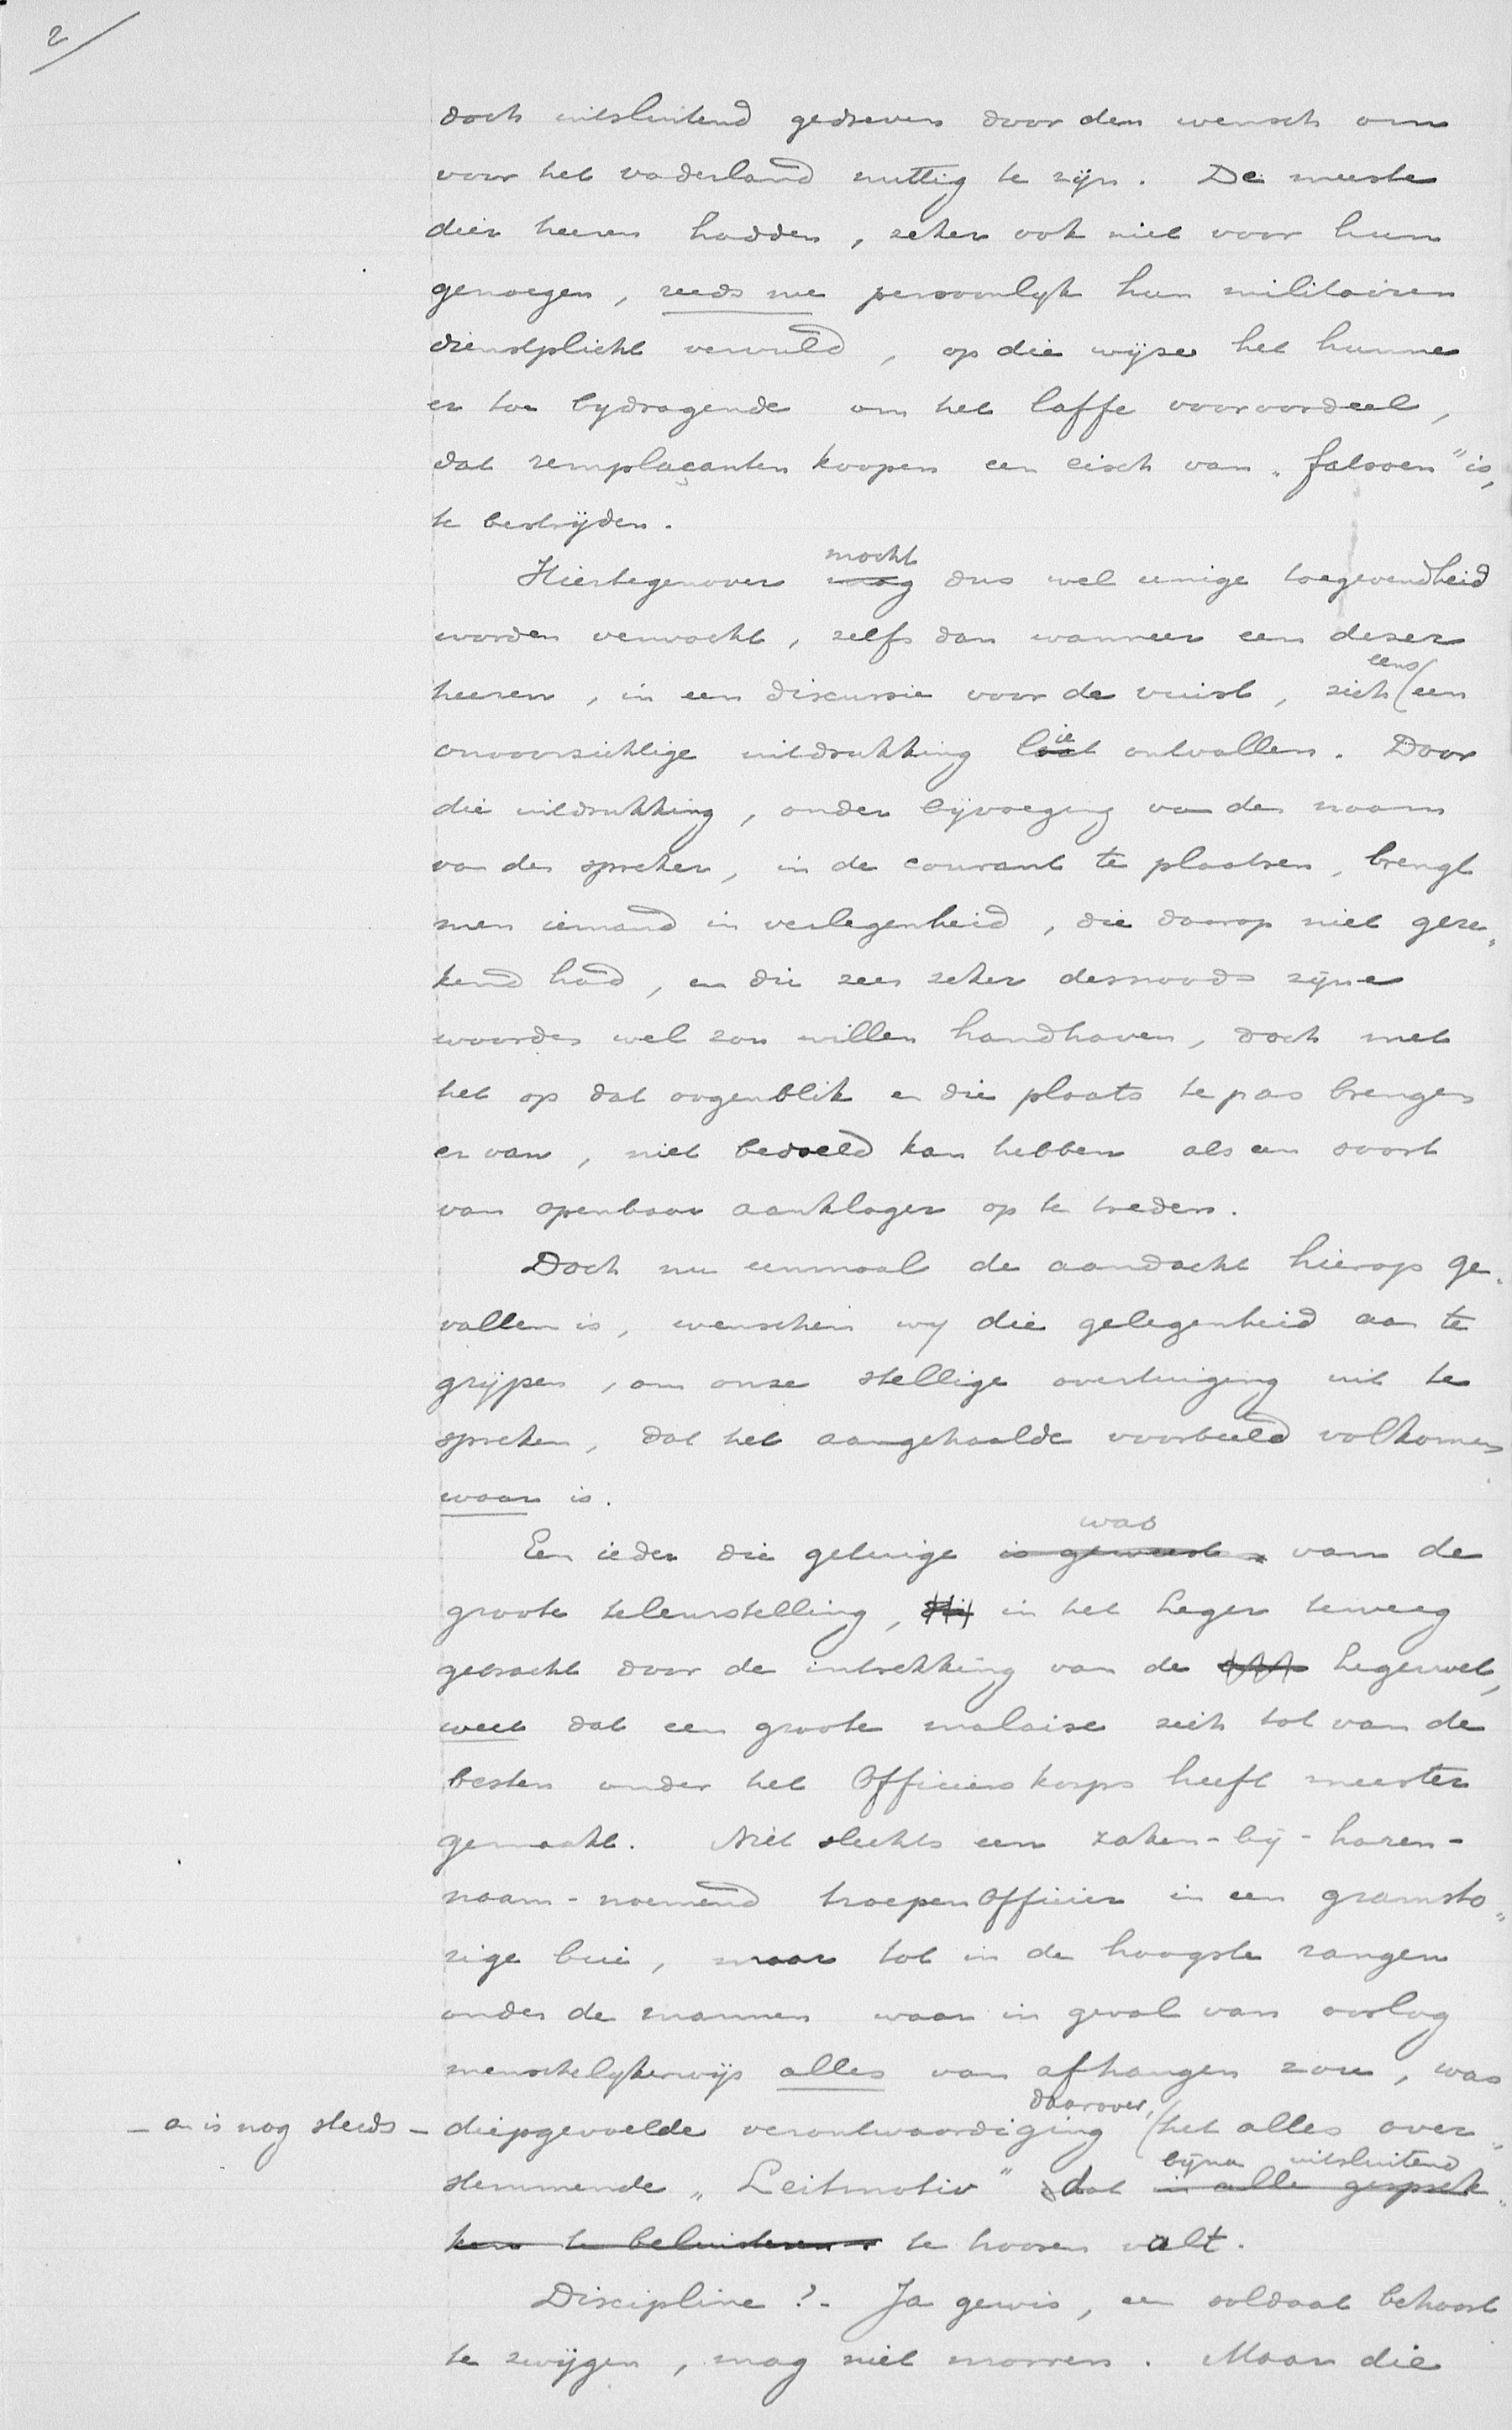 2
doch uitsluitend gedreven door den wensch om
voor het vaderland nuttig te zijn. De meeste
dier heeren hadden, zeker ook niet voor hun
genoegen, reeds nu persoonlyk hun militairen
dienstplicht vervuld, op die wijze het hunne
er toe bydragende om het laffe vooroordeel,
dat remplaçanten koopen een eisch van „fatsoen” is,
te bestrijden.
mocht
Hiertegenover mag dus wel eenige toegevendheid
worden verwacht, zelfs dan wanneer een dezer
eens
heeren, in een discussie voor de vuist, zich (een
onvoorzichtige uitdrukking liet ontvallen. Door
die uitdrukking, onder bijvoeging van den naam
van den spreker, in de courant te plaatsen, brengt
men iemand in verlegenheid, die daarop niet gere„
kend had, en die zeer zeker desnoods zijne
woorden wel zou willen handhaven, doch met
het op dat oogenblik en die plaats te pas brengen
er van, niet bedoeld kan hebben als een soort
van openbaar aanklager op te treden.
Doch nu eenmaal de aandacht hierop ge„
vallen is, wenschen wy die gelegenheid aan te
grijpen, om onze stellige overtuiging uit te
spreken, dat het aangehaalde voorbeeld volkomen
waar is.
was
Een ieder die getuige is geweest van de
groote teleurstelling, die in het Leger teweeg
gebracht door de intrekking van de Legerwet,
weet dat een groote malaise zich tot van de
besten onder het Officierskorps heeft meester
gemaakt. Niet slechts een zaken-bij-haren-
naam-noemend troepenofficier in een gramsto„
rige bui, maar tot in de hoogste rangen
onder de mannen waar in geval van oorlog
menschelykerwijs alles van afhangen zou, was
daarover,
- en is nog steeds - diepgevoelde verontwaardiging (het alles over„
bijna uitsluitend
stemmende „Leitmotiv” dat in alle gesprek„
ken te beluisteren te hooren valt.
Discipline?- Ja gewis, een soldaat behoort
te zwijgen, mag niet morren. Maar die